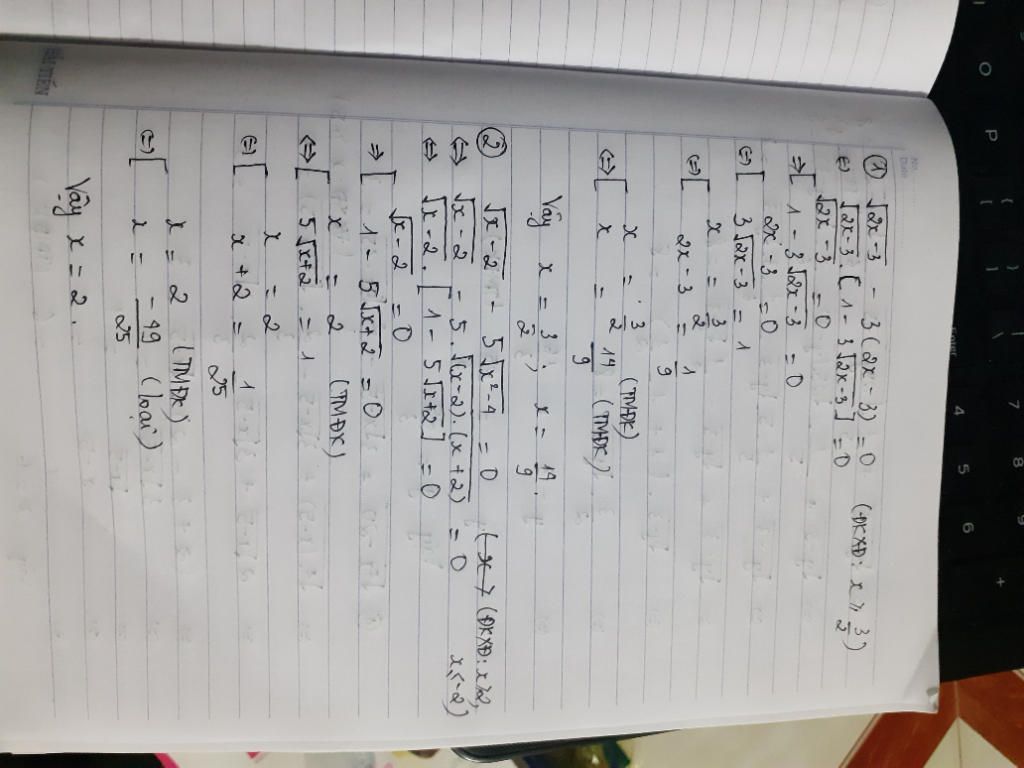 ① √(2x-3) - 3(2x-3) = 0 (ĐKXĐ: x ≥ 3/2)
⇔ √(2x-3) . [1 - 3√(2x-3)] = 0
⇒ [ √(2x-3) = 0
1 - 3√(2x-3) = 0
⇔ [ 2x-3 = 0
3√(2x-3) = 1
⇔ [ x = 3/2
2x-3 = 1/9
⇔ [ x = 3/2 (TMĐK)
x = 14/9 (TMĐK)
Vậy x = 3/2 ; x = 14/9 .
② √(x-2) - 5√(x²-4) = 0 (ĐKXĐ: x ≥ 2, x ≤ -2)
⇔ √(x-2) - 5.√((x-2).(x+2)) = 0
⇔ √(x-2) . [1 - 5√(x+2)] = 0
⇒ [ √(x-2) = 0
1 - 5√(x+2) = 0
⇔ [ x = 2 (TMĐK)
5√(x+2) = 1
⇔ [ x = 2
x+2 = 1/25
⇔ [ x = 2 (TMĐK)
x = -49/25 (loại)
Vậy x = 2 .
HẢI TIẾN
No.
Date
O
P
{
[
}
]
|
\
ENTER
7
8
4
5
6
+